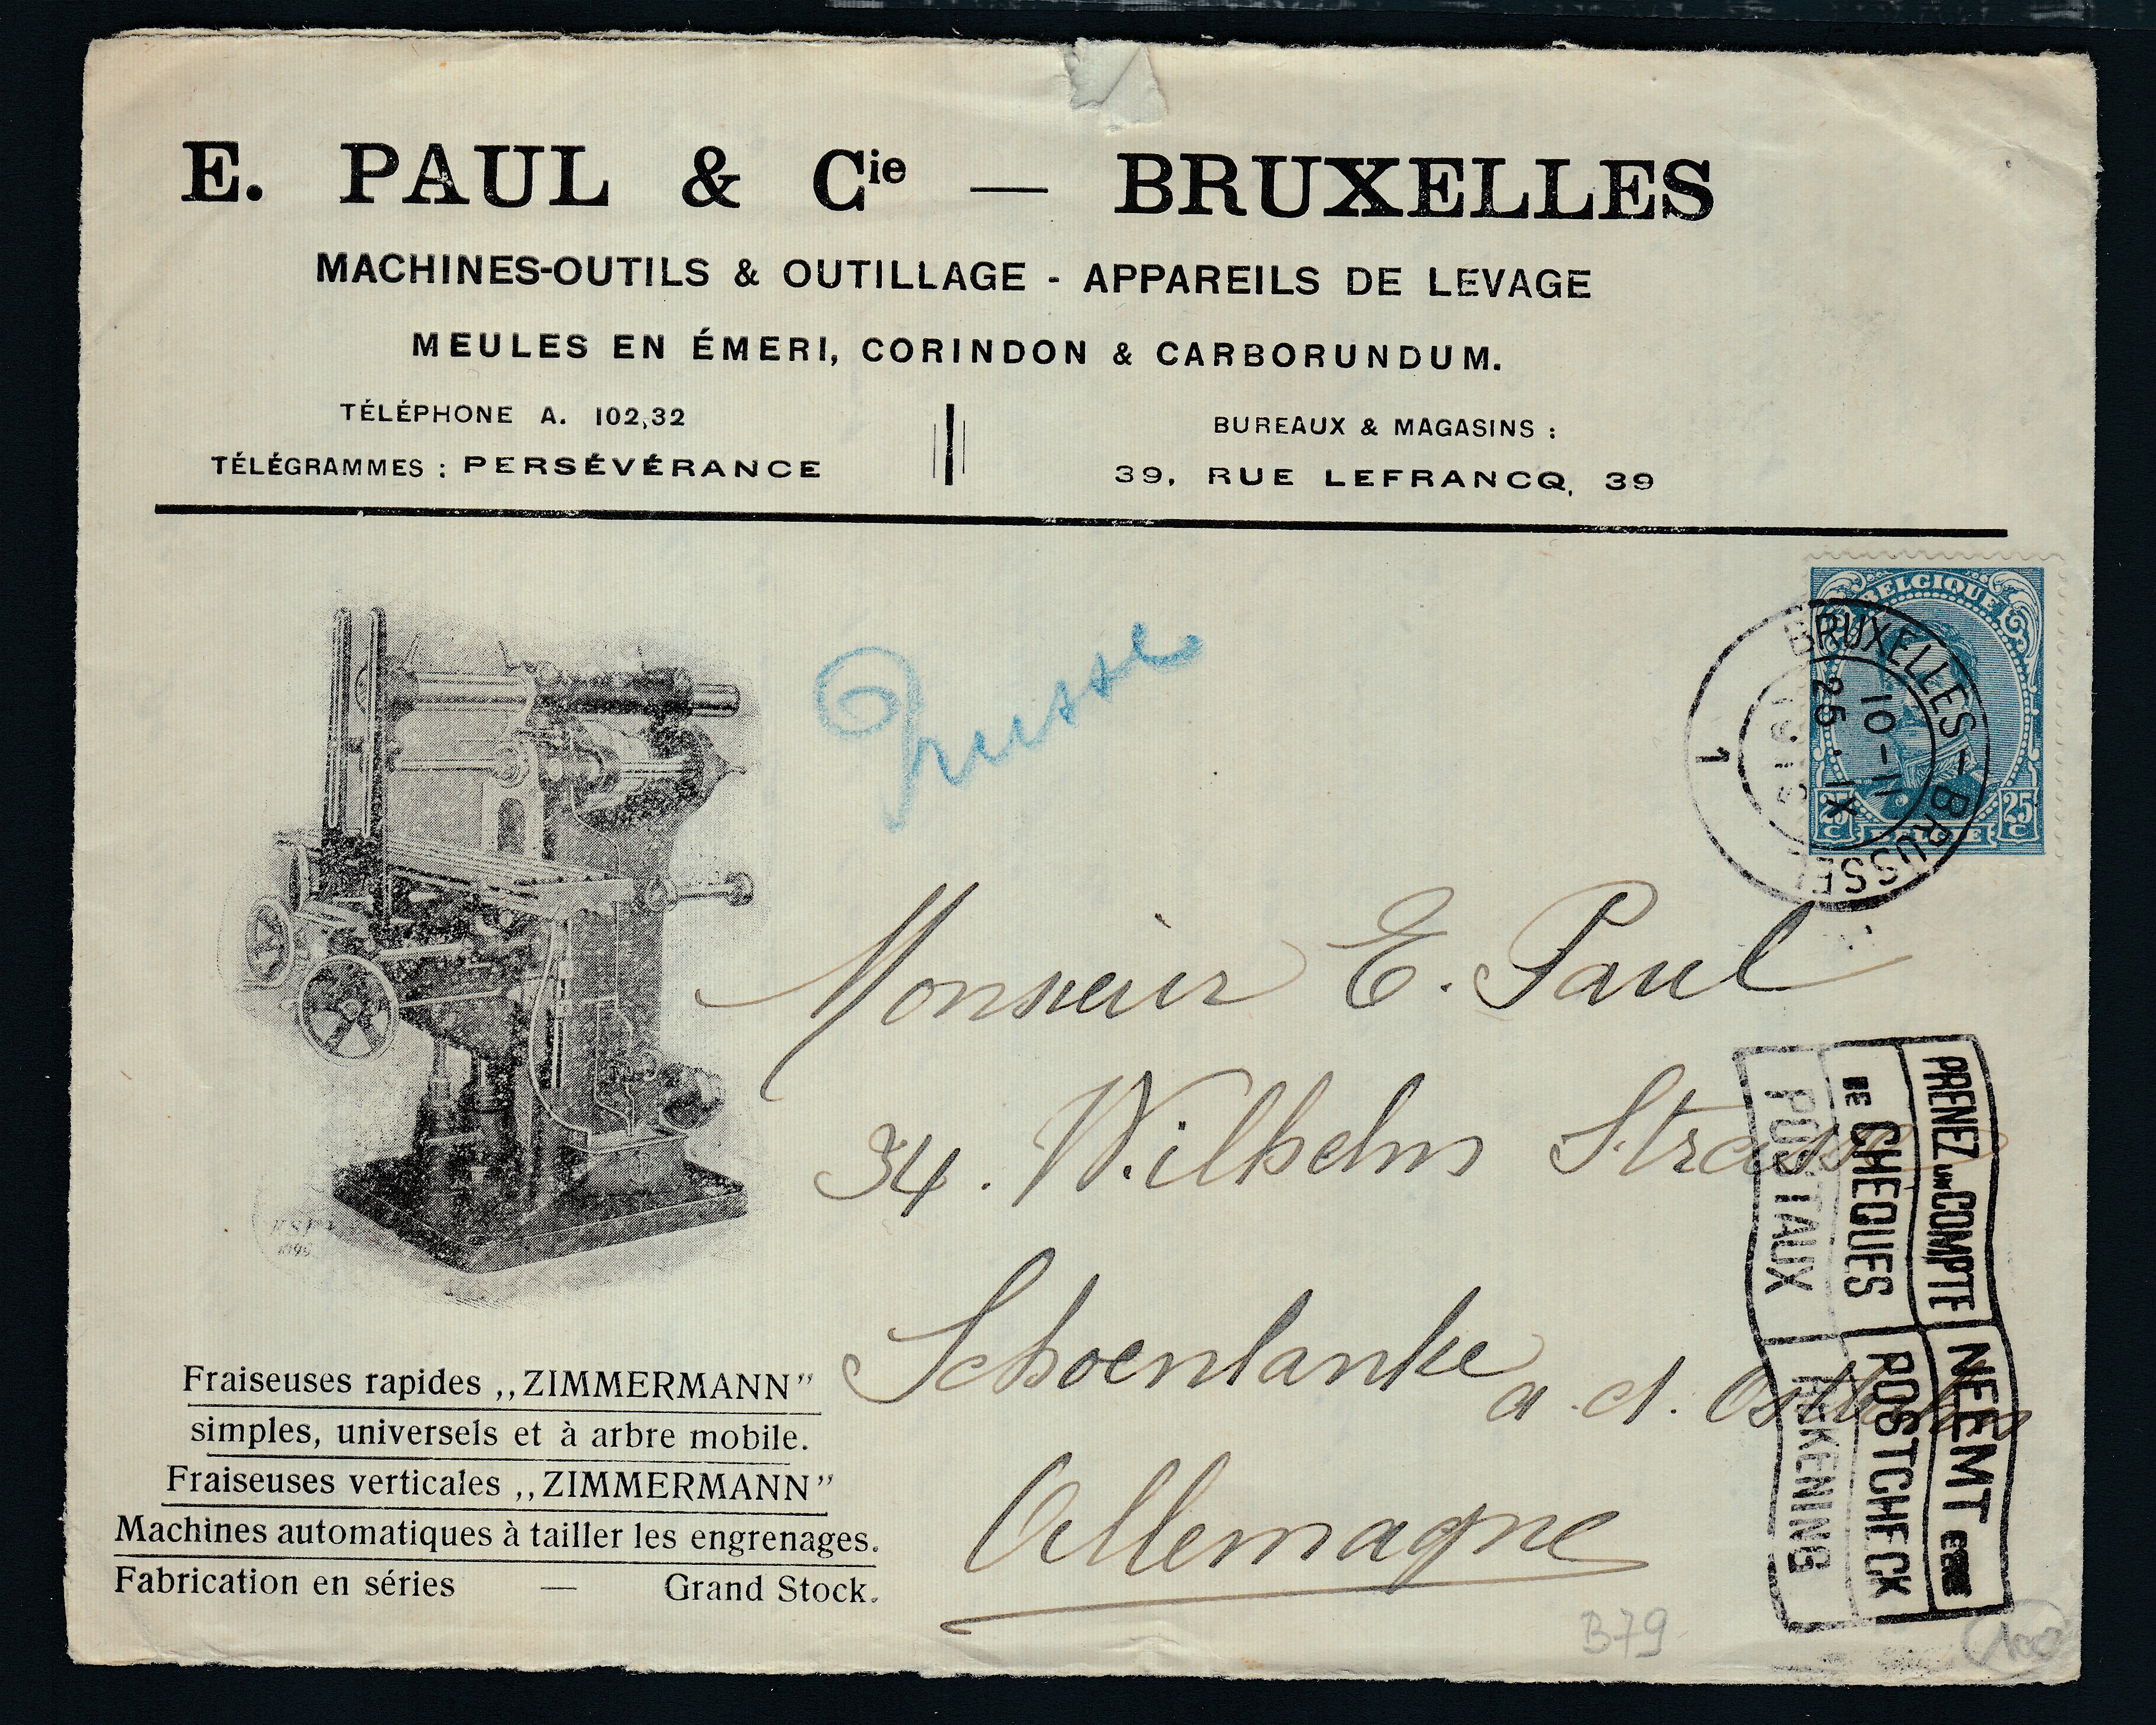 E. PAUL & Cie — BRUXELLES
MACHINES-OUTILS & OUTILLAGE - APPAREILS DE LEVAGE
MEULES EN ÉMERI, CORINDON & CARBORUNDUM.
TÉLÉPHONE A. 102,32
TÉLÉGRAMMES : PERSÉVÉRANCE
BUREAUX & MAGASINS :
39, RUE LEFRANCQ, 39
BELGIQUE
25 C
25 C
BELGIE
BRUXELLES - BRUSSEL
10-11
25. IX
1
Monsieur E. Paul
34. Wilhelm Strasse
Schoenlanke a. d. Ostbahn
Allemagne
PRENEZ UN COMPTE
DE CHEQUES
POSTAUX
NEEMT EENE
POSTCHECK
REKENING
Fraiseuses rapides ,,ZIMMERMANN”
simples, universels et à arbre mobile.
Fraiseuses verticales ,,ZIMMERMANN”
Machines automatiques à tailler les engrenages.
Fabrication en séries — Grand Stock.
B79